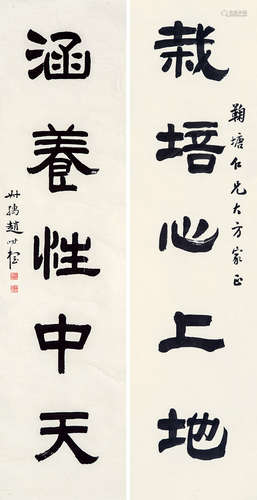 栽培心上地
鞠塘仁兄大方家正
涵養性中天
趙世